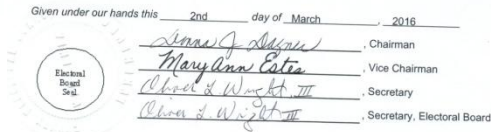 Given under our hands this 2nd day of March, 2016
Donna J. Dagnes, Chairman
Mary Ann Estes, Vice Chairman
Electoral
Board
Seal
Oliver L. Wright, III, Secretary
Oliver L. Wright III, Secretary, Electoral Board